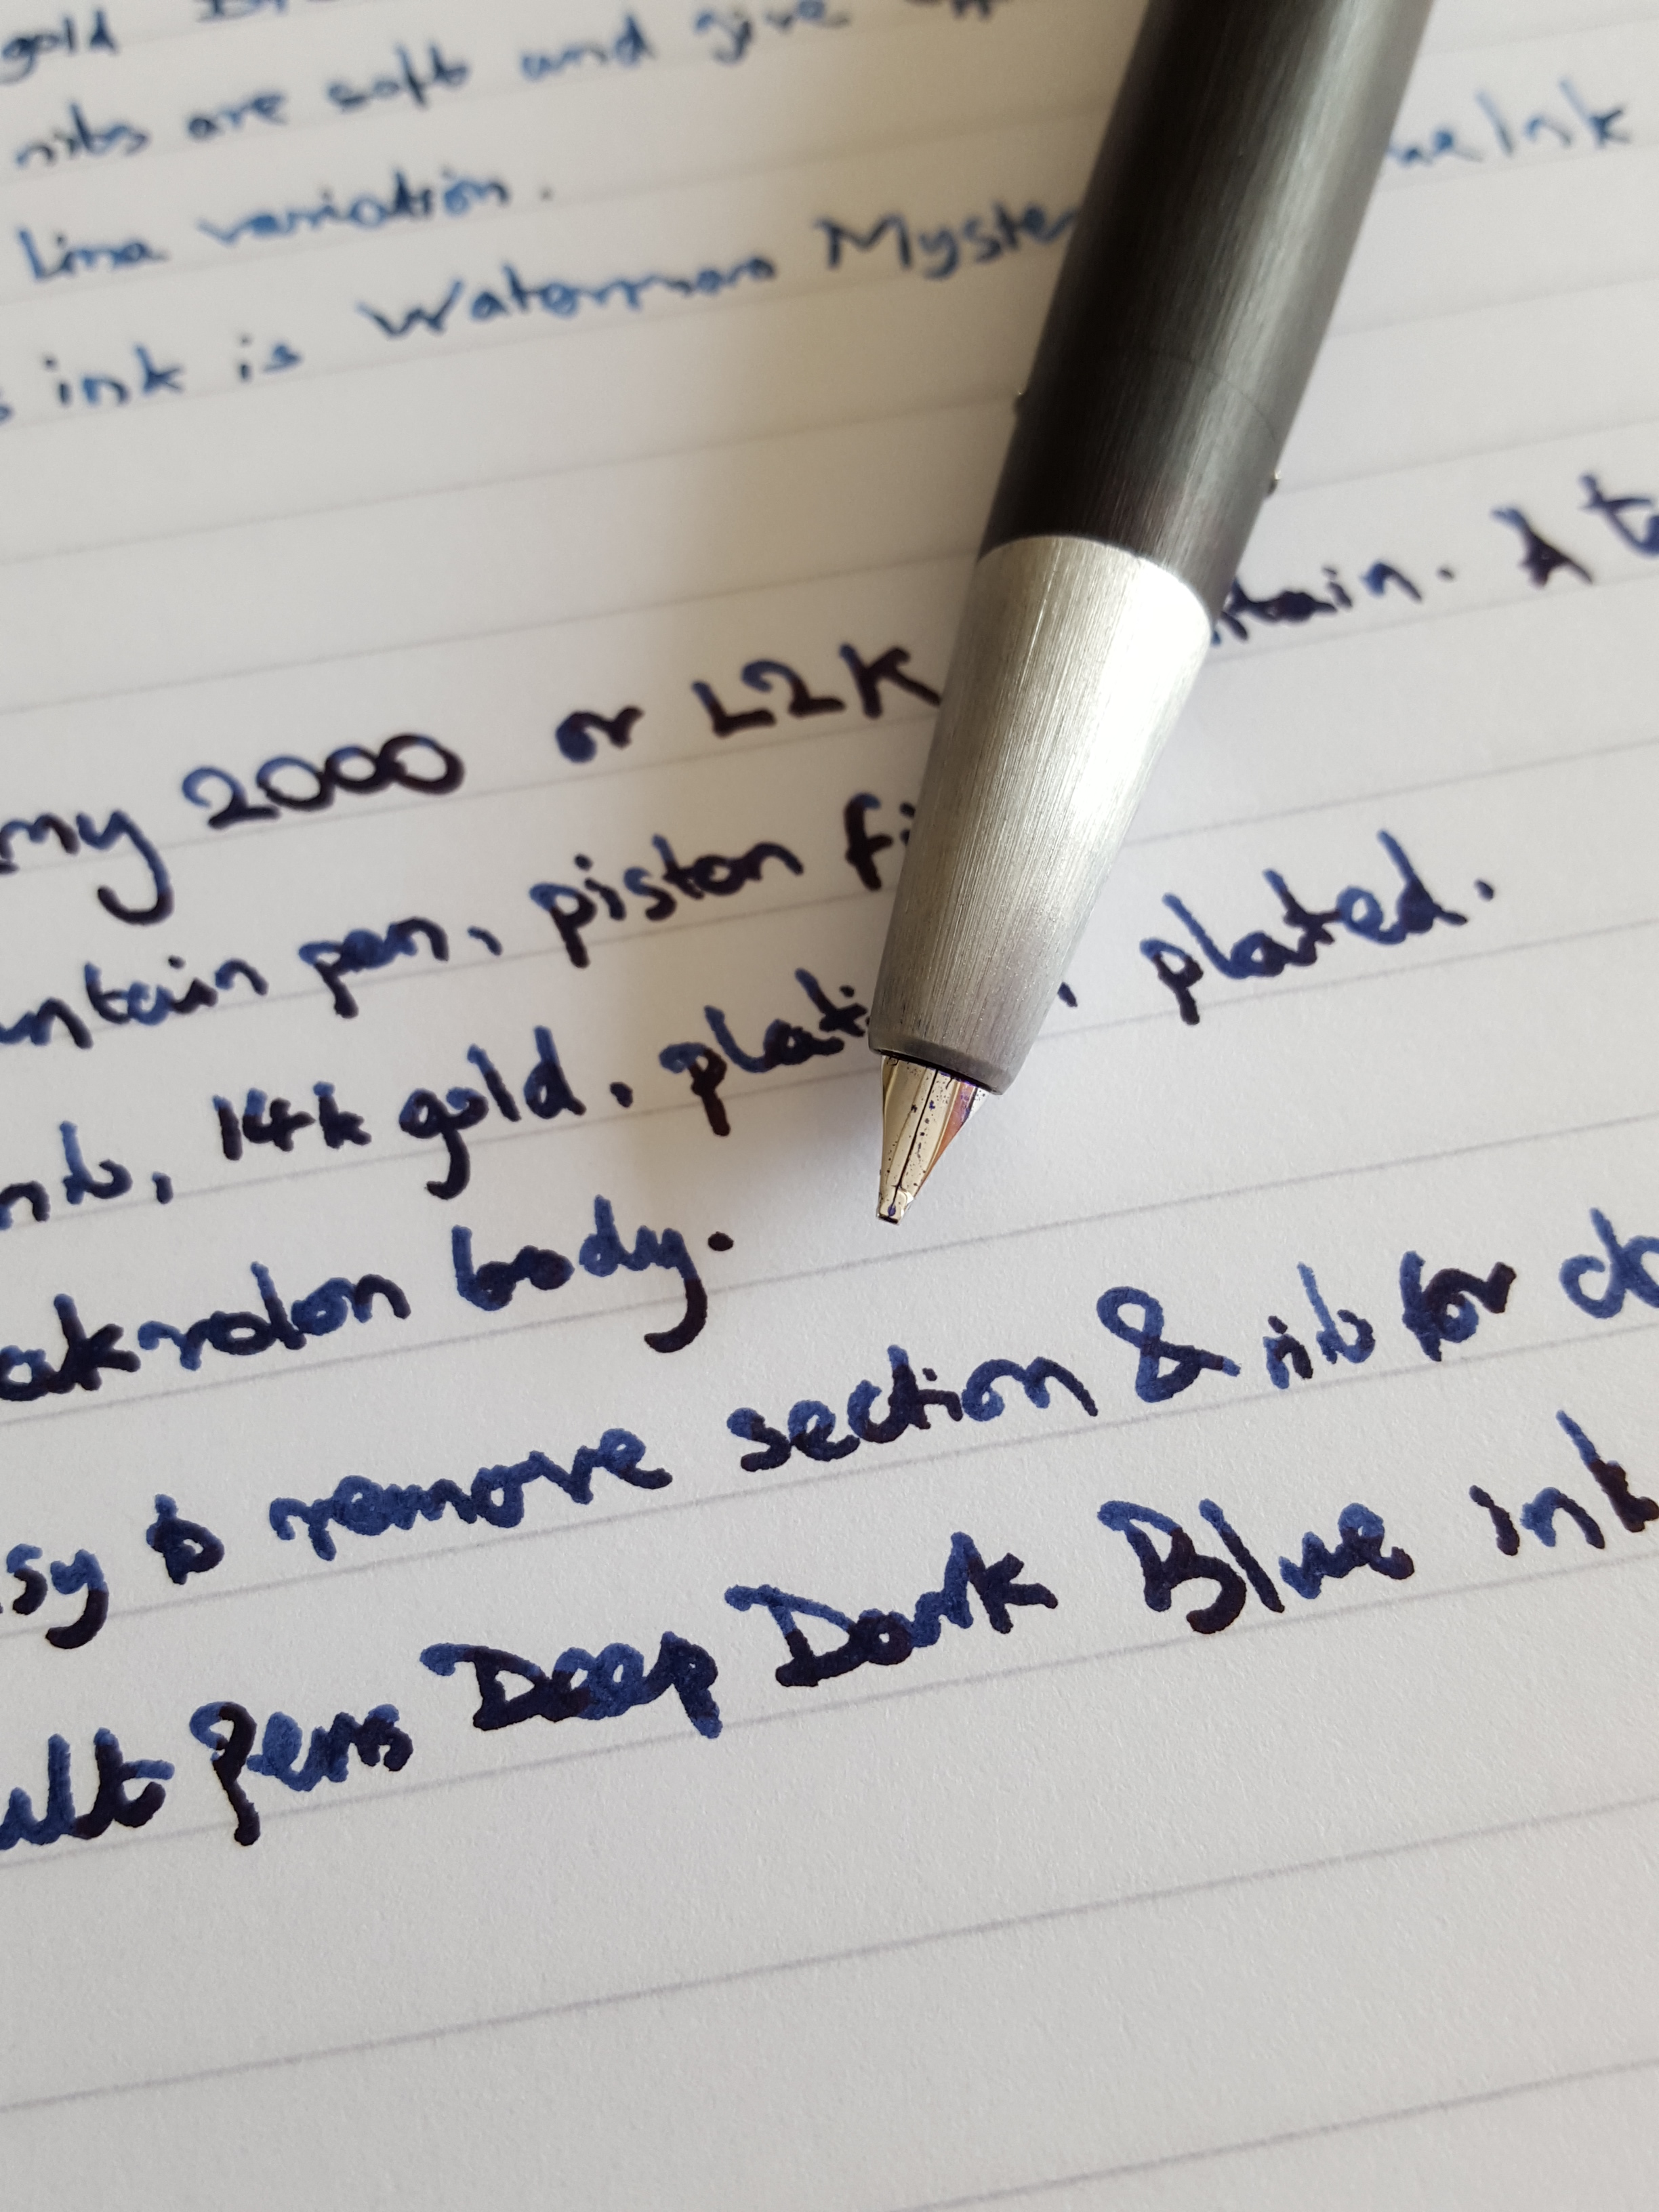 gold
nibs are soft and give
Line variation.
ink is Waterman Myster ue Ink
my 2000 or L2K ntain. A
untain pen, piston fi
nib, 14k gold, plati , plated.
akrolon body.
sy to remove section & nib for cl
ult Pens Deep Dark Blue ink